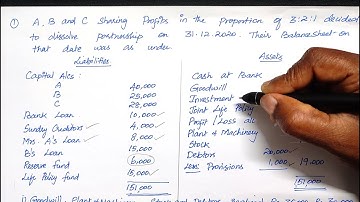 ① A, B and C sharing Profits in the proportion of 3:2:1 decided
to dissolve partnership on 31.12.2020. Their Balance Sheet on
that date was as under.
Liabilities
Assets
Capital A/cs:
Cash at Bank
A 40,000
Goodwill
B 25,000
Investment
C 28,000
Joint Life Policy
Bank Loan 10,000
Profit & Loss a/c
Sundry Creditors 4,000
Plant & Machinery
Mrs. A's Loan 8,000
Stock
B's Loan 15,000
Debtors 20,000
Reserve fund 6,000
Less: Provisions 1,000 19,000
Life Policy fund 15,000
151,000
151,000